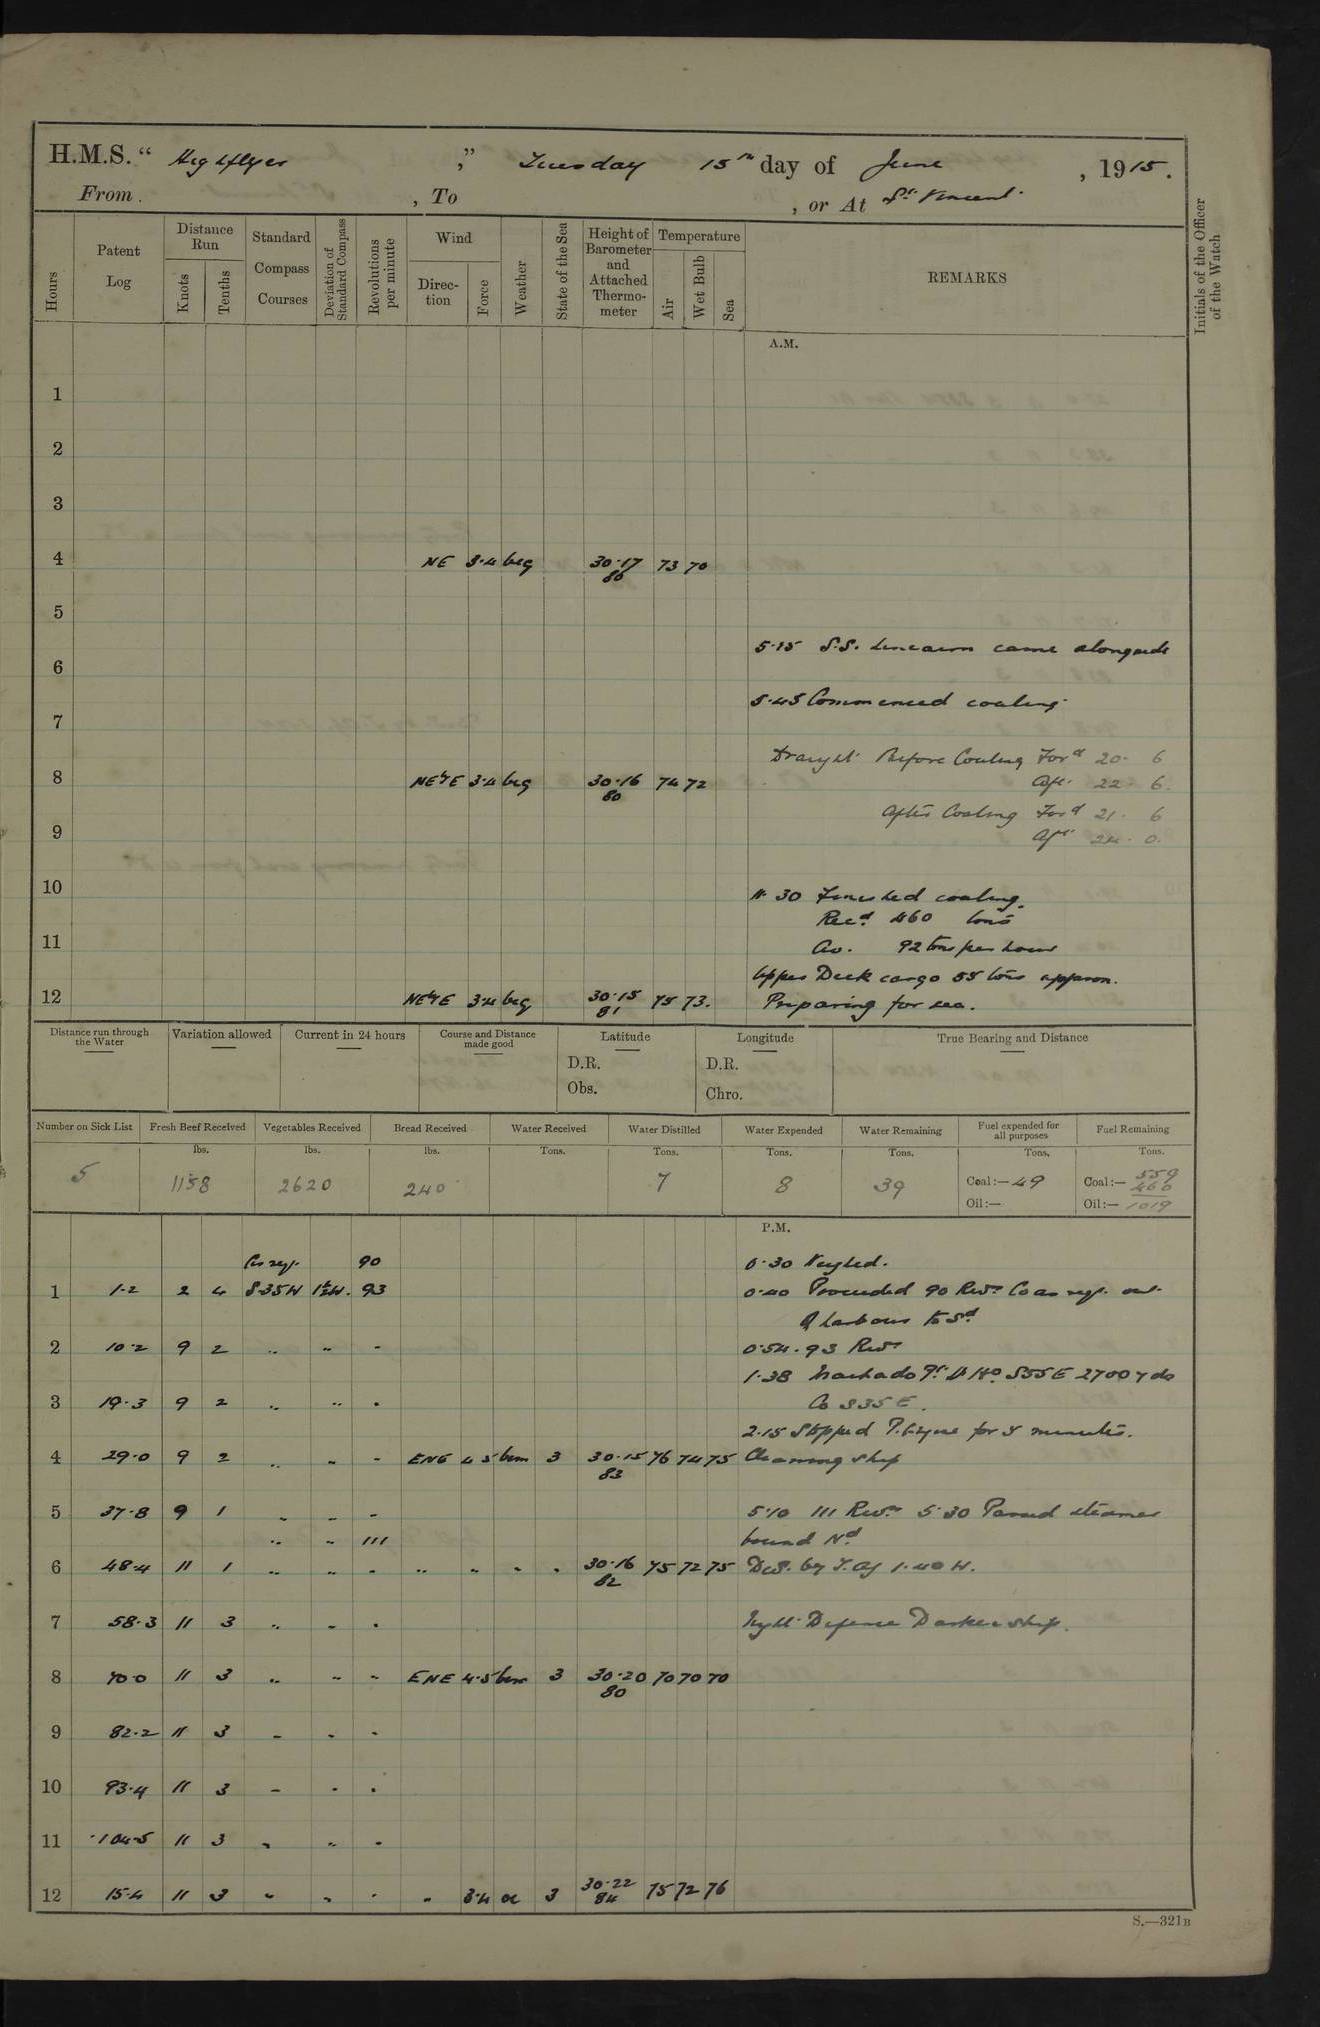 H.M.S. “ Highflyer ,” Tuesday 15th day of June , 1915.
From , To , or At St. Vincent
Hours Patent Log Distance Run Knots Tenths Standard Compass Courses Deviation of Standard Compass Revolutions per minute Wind Direction Force Weather State of the Sea Height of Barometer and Attached Thermometer Temperature Air Wet Bulb Sea REMARKS Initials of the Officer of the Watch
A.M.
1
2
3
4 NE 3.4 bcg 30.17 73 70
80
5
5.15 S.S. came alongside
6
5.45 Commenced coaling
7
Draught Before Coaling Ford 20. 6
8 NE'lyE 3.4 bcg 30.16 74 72 Aft. 22. 6.
80
After Coaling Ford 21. 6
9 Aft 24. 0.
10
11.30 Finished coaling.
Recd. 460 tons
11 Av. 92 tons per hour
Upper Deck cargo 55 tons approx.
12 NE'lyE 3.4 bcg 30.15 75 73. Preparing for sea.
81
Distance run through the Water Variation allowed Current in 24 hours Course and Distance made good Latitude Longitude True Bearing and Distance
D.R. D.R.
Obs. Chro.
Number on Sick List Fresh Beef Received Vegetables Received Bread Received Water Received Water Distilled Water Expended Water Remaining Fuel expended for all purposes Fuel Remaining
lbs. lbs. lbs. Tons. Tons. Tons. Tons. Tons. Tons.
5 1158 2620 240 7 8 39 Coal:— 49 Coal:— 559
460
Oil:— Oil:— 1019
P.M.
Co. reqs. 90 0.30 Weighed.
1 1.2 2 4 S35W 1½W. 93 0.40 Proceeded 90 Revs Co as req. out
of harbour to Sd
2 10.2 9 2 .. .. - 0.54. 93 Revs
1.38 Machado Pt. Lt Ho. S55E 2700 yds
3 19.3 9 2 .. .. . Co S35E.
2.15 Stopped P. Engine for 5 minutes.
4 29.0 9 2 .. .. - ENE 4.5 bcm 3 30.15 76 74 75 Cleaning ship
83
5 37.8 9 1 .. .. - 5.10 111 Revs. 5.30 Passed steamer
.. .. 111 bound Nd
6 48.4 11 1 .. .. - .. .. .. .. 30.16 75 72 75
82
7 58.3 11 3 .. .. . Night Defence Darken ship.
8 70.0 11 3 .. .. - ENE 4.5 bcm 3 30.20 70 70 70
80
9 82.2 11 3 - - -
10 93.4 11 3 - - .
11 104.5 11 3 .. .. -
12 15.4 11 3 .. .. . .. 3.4 oc 3 30.22 75 72 76
84
S.—321B